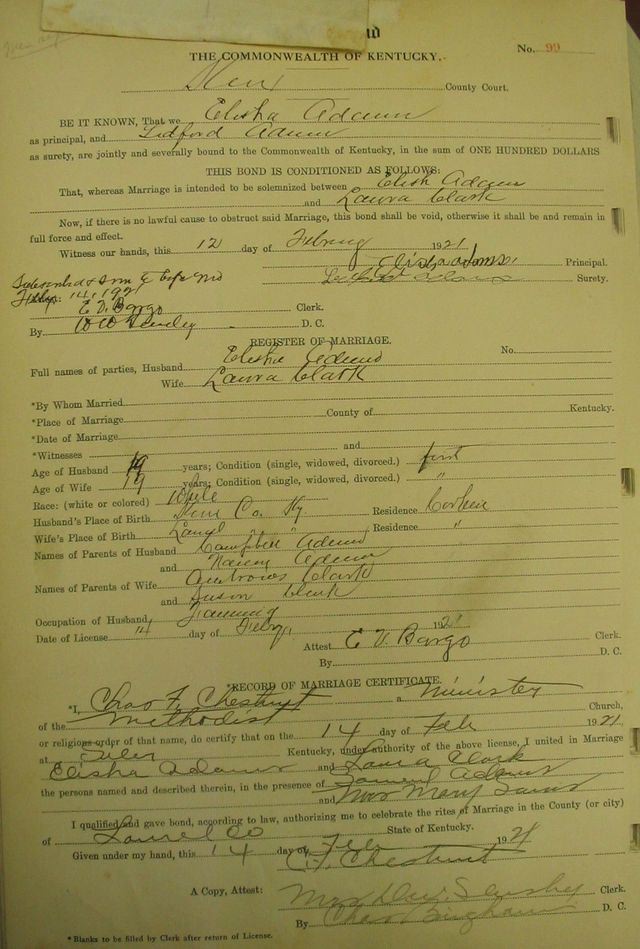 No. 99
THE COMMONWEALTH OF KENTUCKY.
County Court.
BE IT KNOWN, That we Elisha Adams
as principal, and Ledford Adams
as surety, are jointly and severally bound to the Commonwealth of Kentucky, in the sum of ONE HUNDRED DOLLARS
THIS BOND IS CONDITIONED AS FOLLOWS:
That, whereas Marriage is intended to be solemnized between Elish Adams
and Laura Clark
Now, if there is no lawful cause to obstruct said Marriage, this bond shall be void, otherwise it shall be and remain in
full force and effect.
Witness our hands, this 12 day of 1921
Elisha adams Principal.
Surety.
14, 1921
E. V. Bargo Clerk.
By D. C.
REGISTER OF MARRIAGE.
Full names of parties, Husband Elisha Adams No.
Wife Laura Clark
*By Whom Married
*Place of Marriage County of Kentucky.
*Date of Marriage
*Witnesses and
Age of Husband 19 years; Condition (single, widowed, divorced.) first
Age of Wife 19 years; Condition (single, widowed, divorced.) "
Race: (white or colored) White
Husband's Place of Birth Co. Ky Residence Corbin
Wife's Place of Birth Laurel " " Residence "
Names of Parents of Husband Campbell Adams
and Nancy Adams
Names of Parents of Wife Clark
and Susan Clark
Occupation of Husband Farming
Date of License 14 day of Feby. 1921
Attest E. V. Bargo Clerk.
By D. C.
*RECORD OF MARRIAGE CERTIFICATE.
*I, Chas. F. Chestnut a Minister
of the Methodist Church,
or religious order of that name, do certify that on the 14 day of Feb 1921
at Kentucky, under authority of the above license, I united in Marriage
Elisha Adams and Laura Clark
the persons named and described therein, in the presence of Adams
and Mrs Mary
I qualified and gave bond, according to law, authorizing me to celebrate the rites of Marriage in the County (or city)
of Laurel Co State of Kentucky.
Given under my hand, this 14 day of Feb 1921
C. F. Chestnut
A Copy, Attest: Clerk.
By Chas Bingham D. C.
*Blanks to be filled by Clerk after return of License.